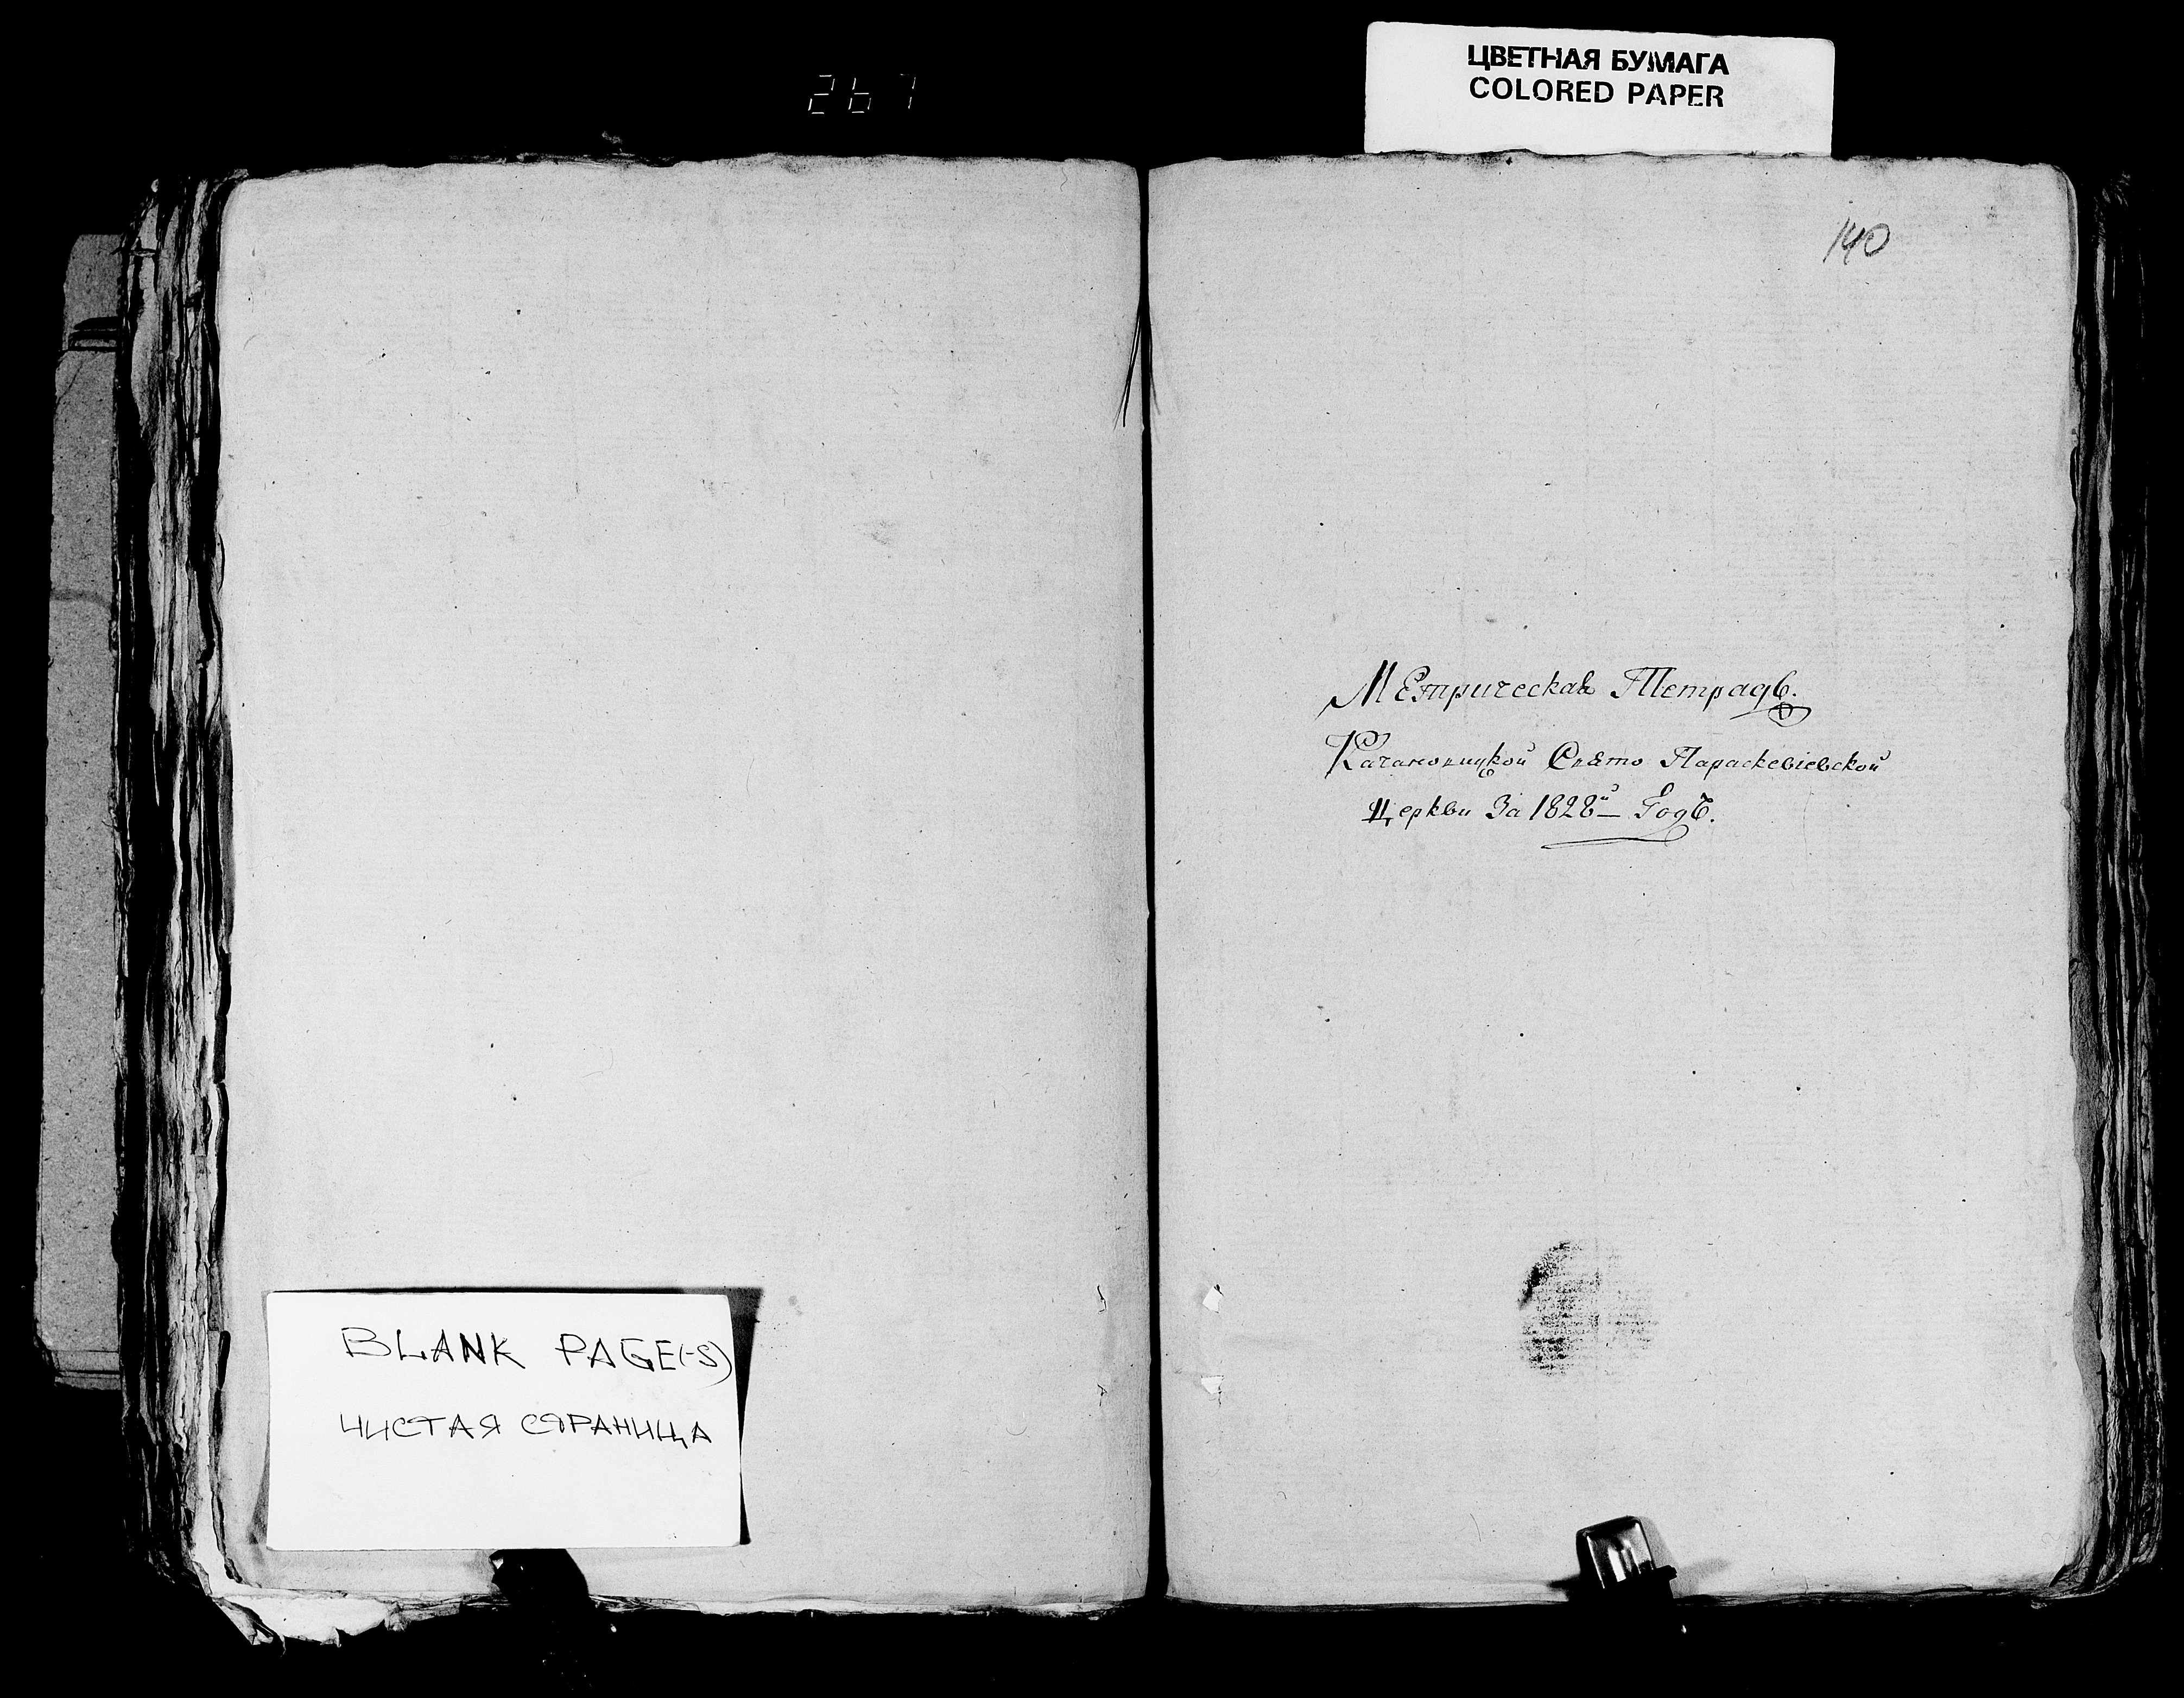 267
ЦВЕТНАЯ БУМАГА
COLORED PAPER
140
Метрическая Тетрадь.
Качановицкой Свято Параскевіевской
Церкви За 1828й Годъ.
BLANK PAGE(-S)
ЧИСТАЯ СТРАНИЦА